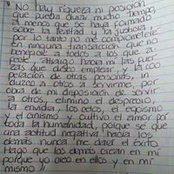 No hay riqueza ni posición
que pueda durar mucho tiempo
a menos que se haya formado
sobre la lealtad y la justicia
por lo tanto no me comprometeré
en ninguna transacción que no
beneficie a todos a los que a
Atraigo hacia mi las fuer
zas que deseo emplear y la coo
peración de otras personas, in
duzco a otros a servirme, por
que de mi disposición de servir
a otros, elimino el desprecio
la envidia, los celos, el egoismo
y el cinismo y cultivo el amor por
toda la humanidad, porque sé que
una actitud negativa hacia los
demás nunca me dará el éxito.
Hago que los demás crean en mi
porque yo creo en ellos y en mi
mismo